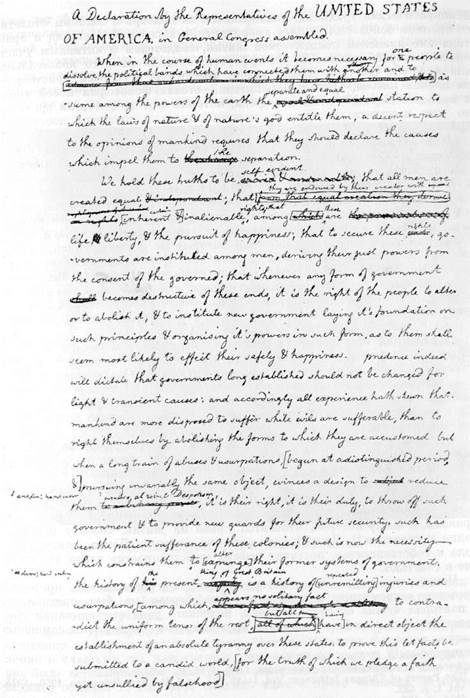 A Declaration by the Representatives of the UNITED STATES
OF AMERICA, in General Congress assembled.
When in the course of human events it becomes necessary for one people to
dissolve the political bands which have connected them with another, and to
assume among the powers of the earth the separate and equal station to
which the laws of nature & of nature's god entitle them, a decent respect
to the opinions of mankind requires that they should declare the causes
which impel them to the separation.
We hold these truths to be self evident that all men are
created equal & independant; that they are endowed by their creator with
from that equal creation they derive
rights; that
[inherent &] inalienable, among which are
life & liberty, & the pursuit of happiness; that to secure these rights, go-
vernments are instituted among men, deriving their just powers from
the consent of the governed; that whenever any form of government
shall becomes destructive of these ends, it is the right of the people to alter
or to abolish it, & to institute new government laying it's foundation on
such principles & organising it's powers in such form, as to them shall
seem most likely to effect their safety & happiness. prudence indeed
will dictate that governments long established should not be changed for
light & transient causes: and accordingly all experience hath shewn that
mankind are more disposed to suffer while evils are sufferable, than to
right themselves by abolishing the forms to which they are accustomed. but
when a long train of abuses & usurpations, [begun at a distinguished period,
&] pursuing invariably the same object, evinces a design to reduce
under absolute Despotism
them, it is their right, it is their duty, to throw off such
government & to provide new guards for their future security. such has
been the patient sufferance of these colonies; & such is now the necessity
alter
which constrains them to [expunge] their former systems of government.
the king of Great Britain repeated
the history of his present is a history of [unremitting] injuries and
appears no solitary fact
usurpations, [among which, to contra-
but all having
dict the uniform tenor of the rest, [all of which] [have] in direct object the
establishment of an absolute tyranny over these states. to prove this let facts be
submitted to a candid world, [for the truth of which we pledge a faith
yet unsullied by falsehood]